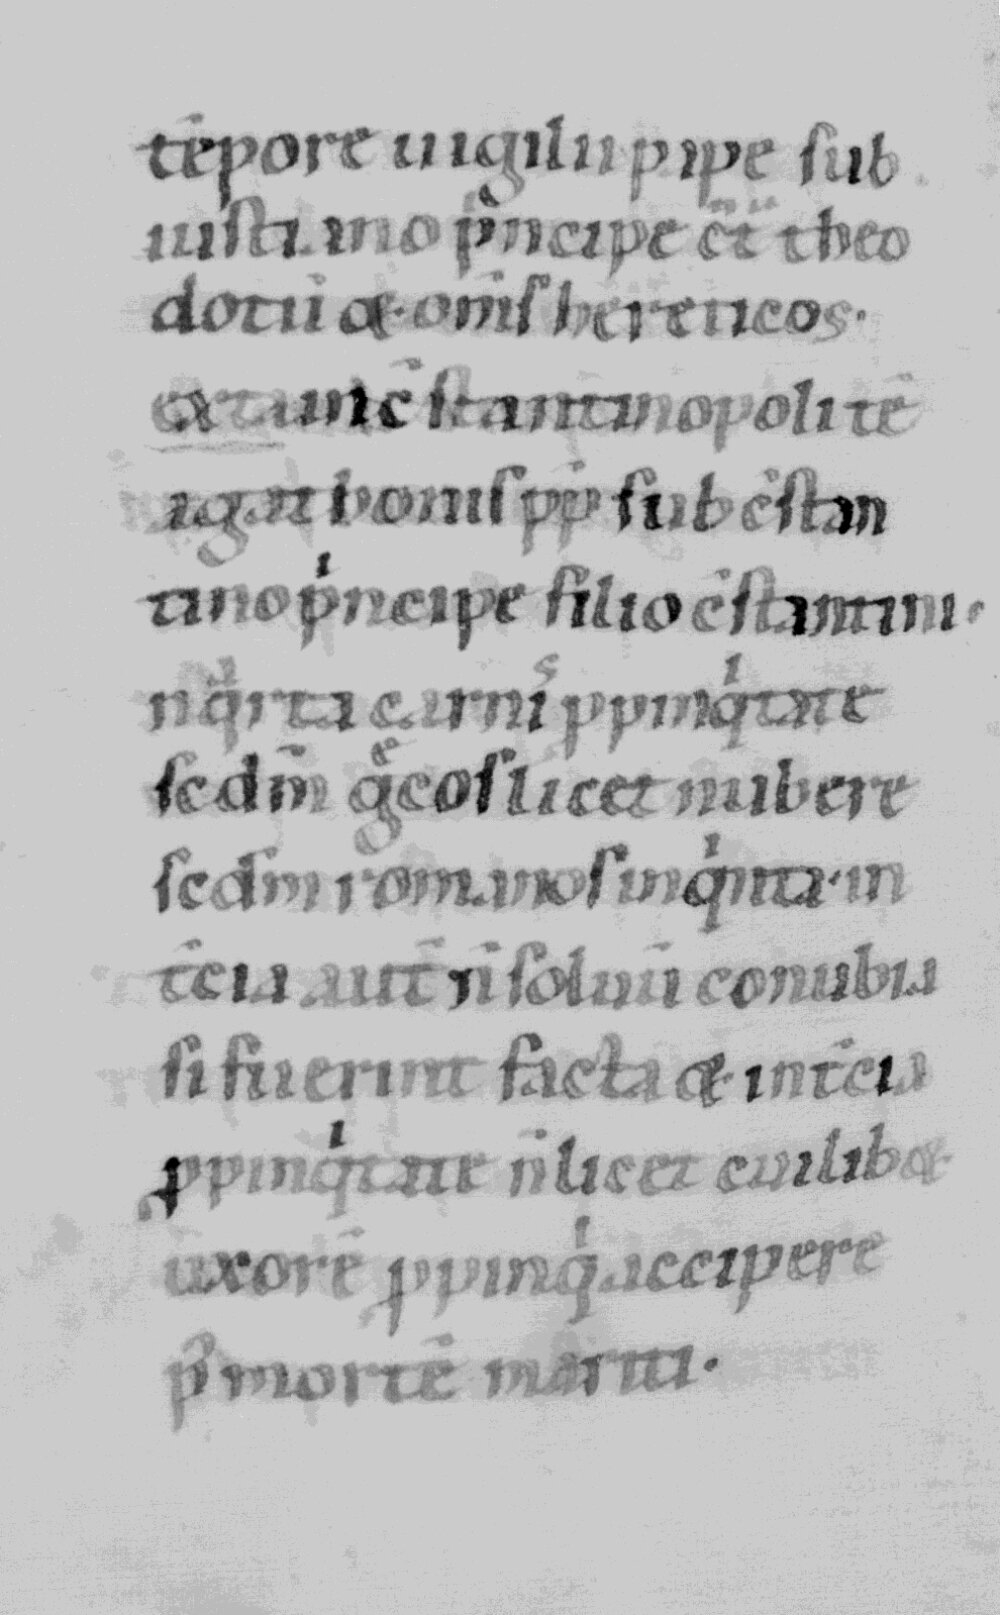 tēpore uigilii pape sub
iustiniano pͥncipe c̄t̄ theo
dotū & om̄s hereticos.
exta in c̄stantinopoli tē
agathonis pp̄ sub c̄stan
tino pͥncipe filio c̄stantini.
nqͣrta carnis ppinqͥtate
scdm̄ gͤcos licet nubere
scdm̄ romanos inqͥnta. in
t̄cia aut̄ n̄ soluūt conubia
si fuerint facta & int̄cia
ꝓpinqͥtate n̄ licet cuilib&
uxorē ꝓpinqͥ accipere
p̄ mortē mariti.